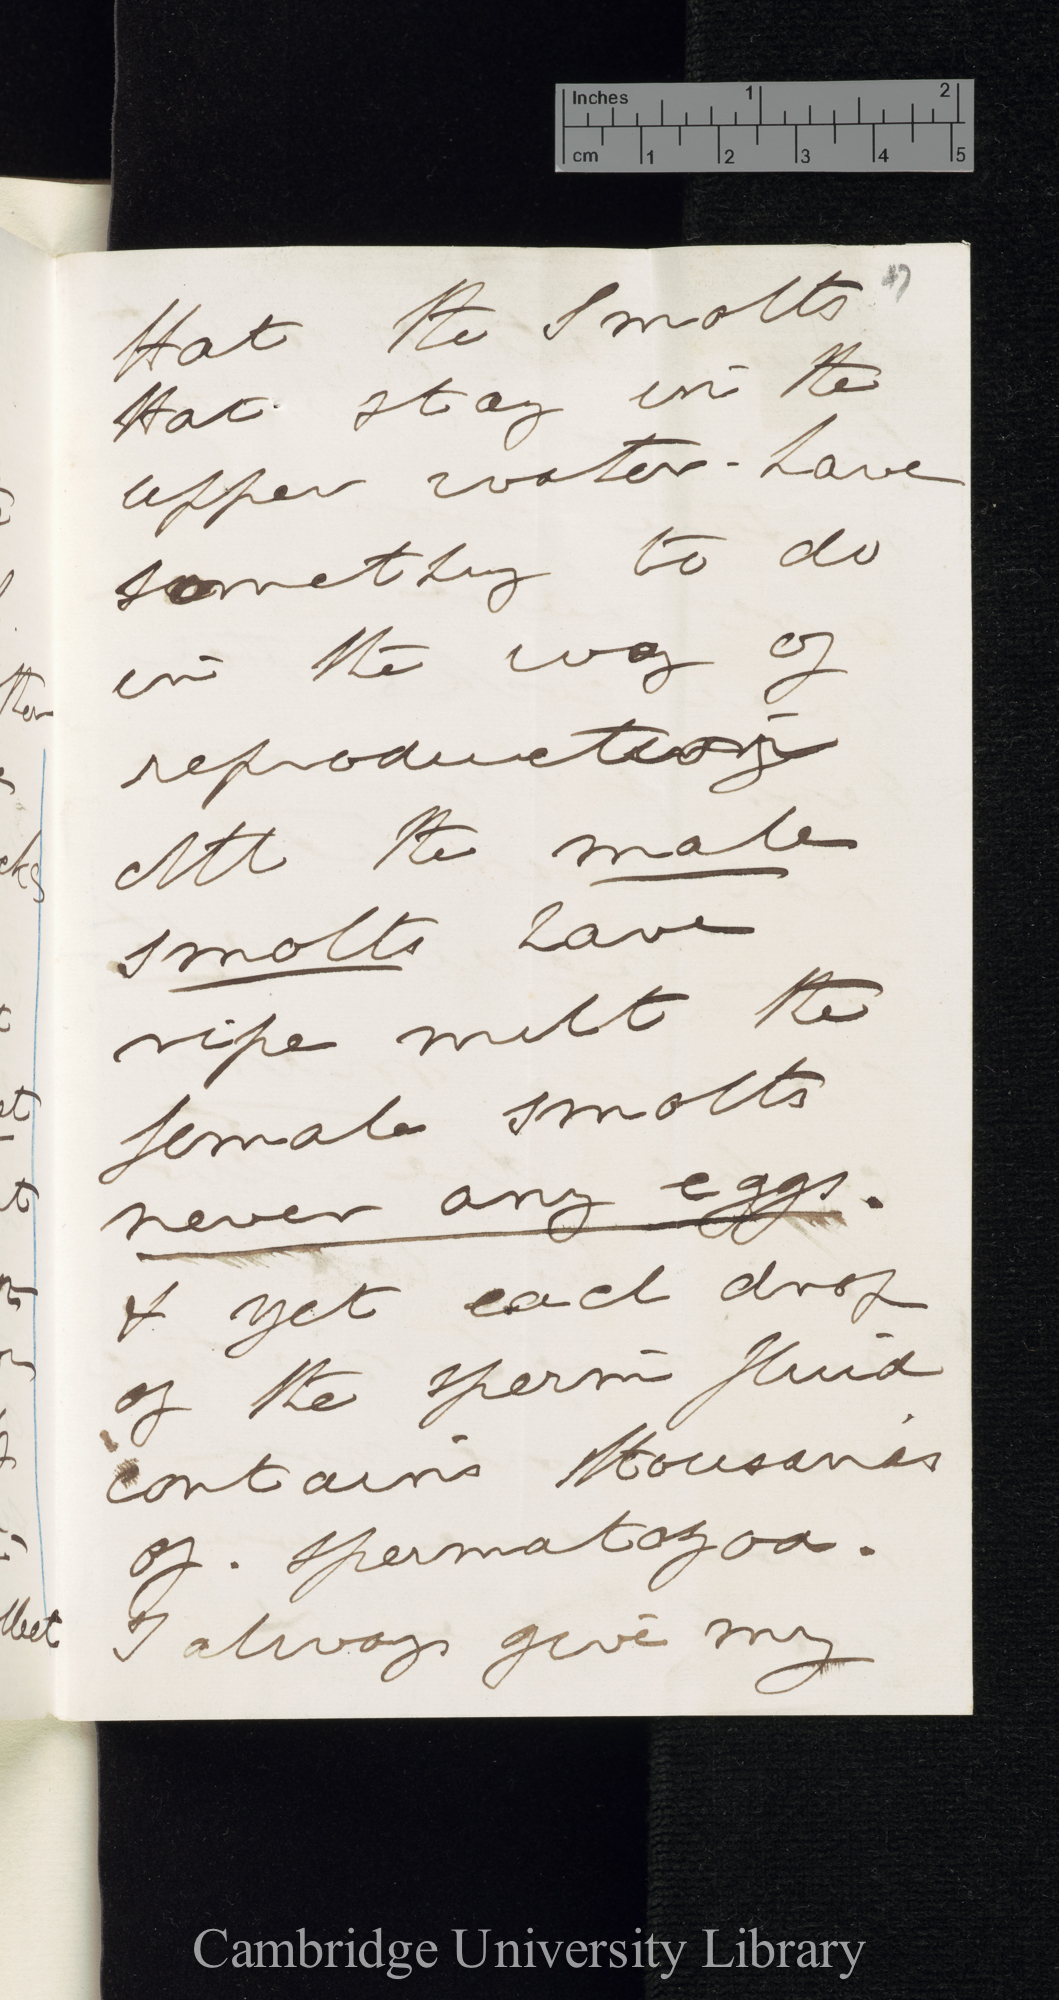 Inches 1 2
cm 1 2 3 4 5
that the Smolts
that stay in the
upper water - have
something to do
in the way of
reproduction
All the male
smolts have
ripe milt the
female smolts
never any eggs.
& yet each drop
of the sperm fluid
contains thousands
of. spermatozoa.
I always give my
Cambridge University Library